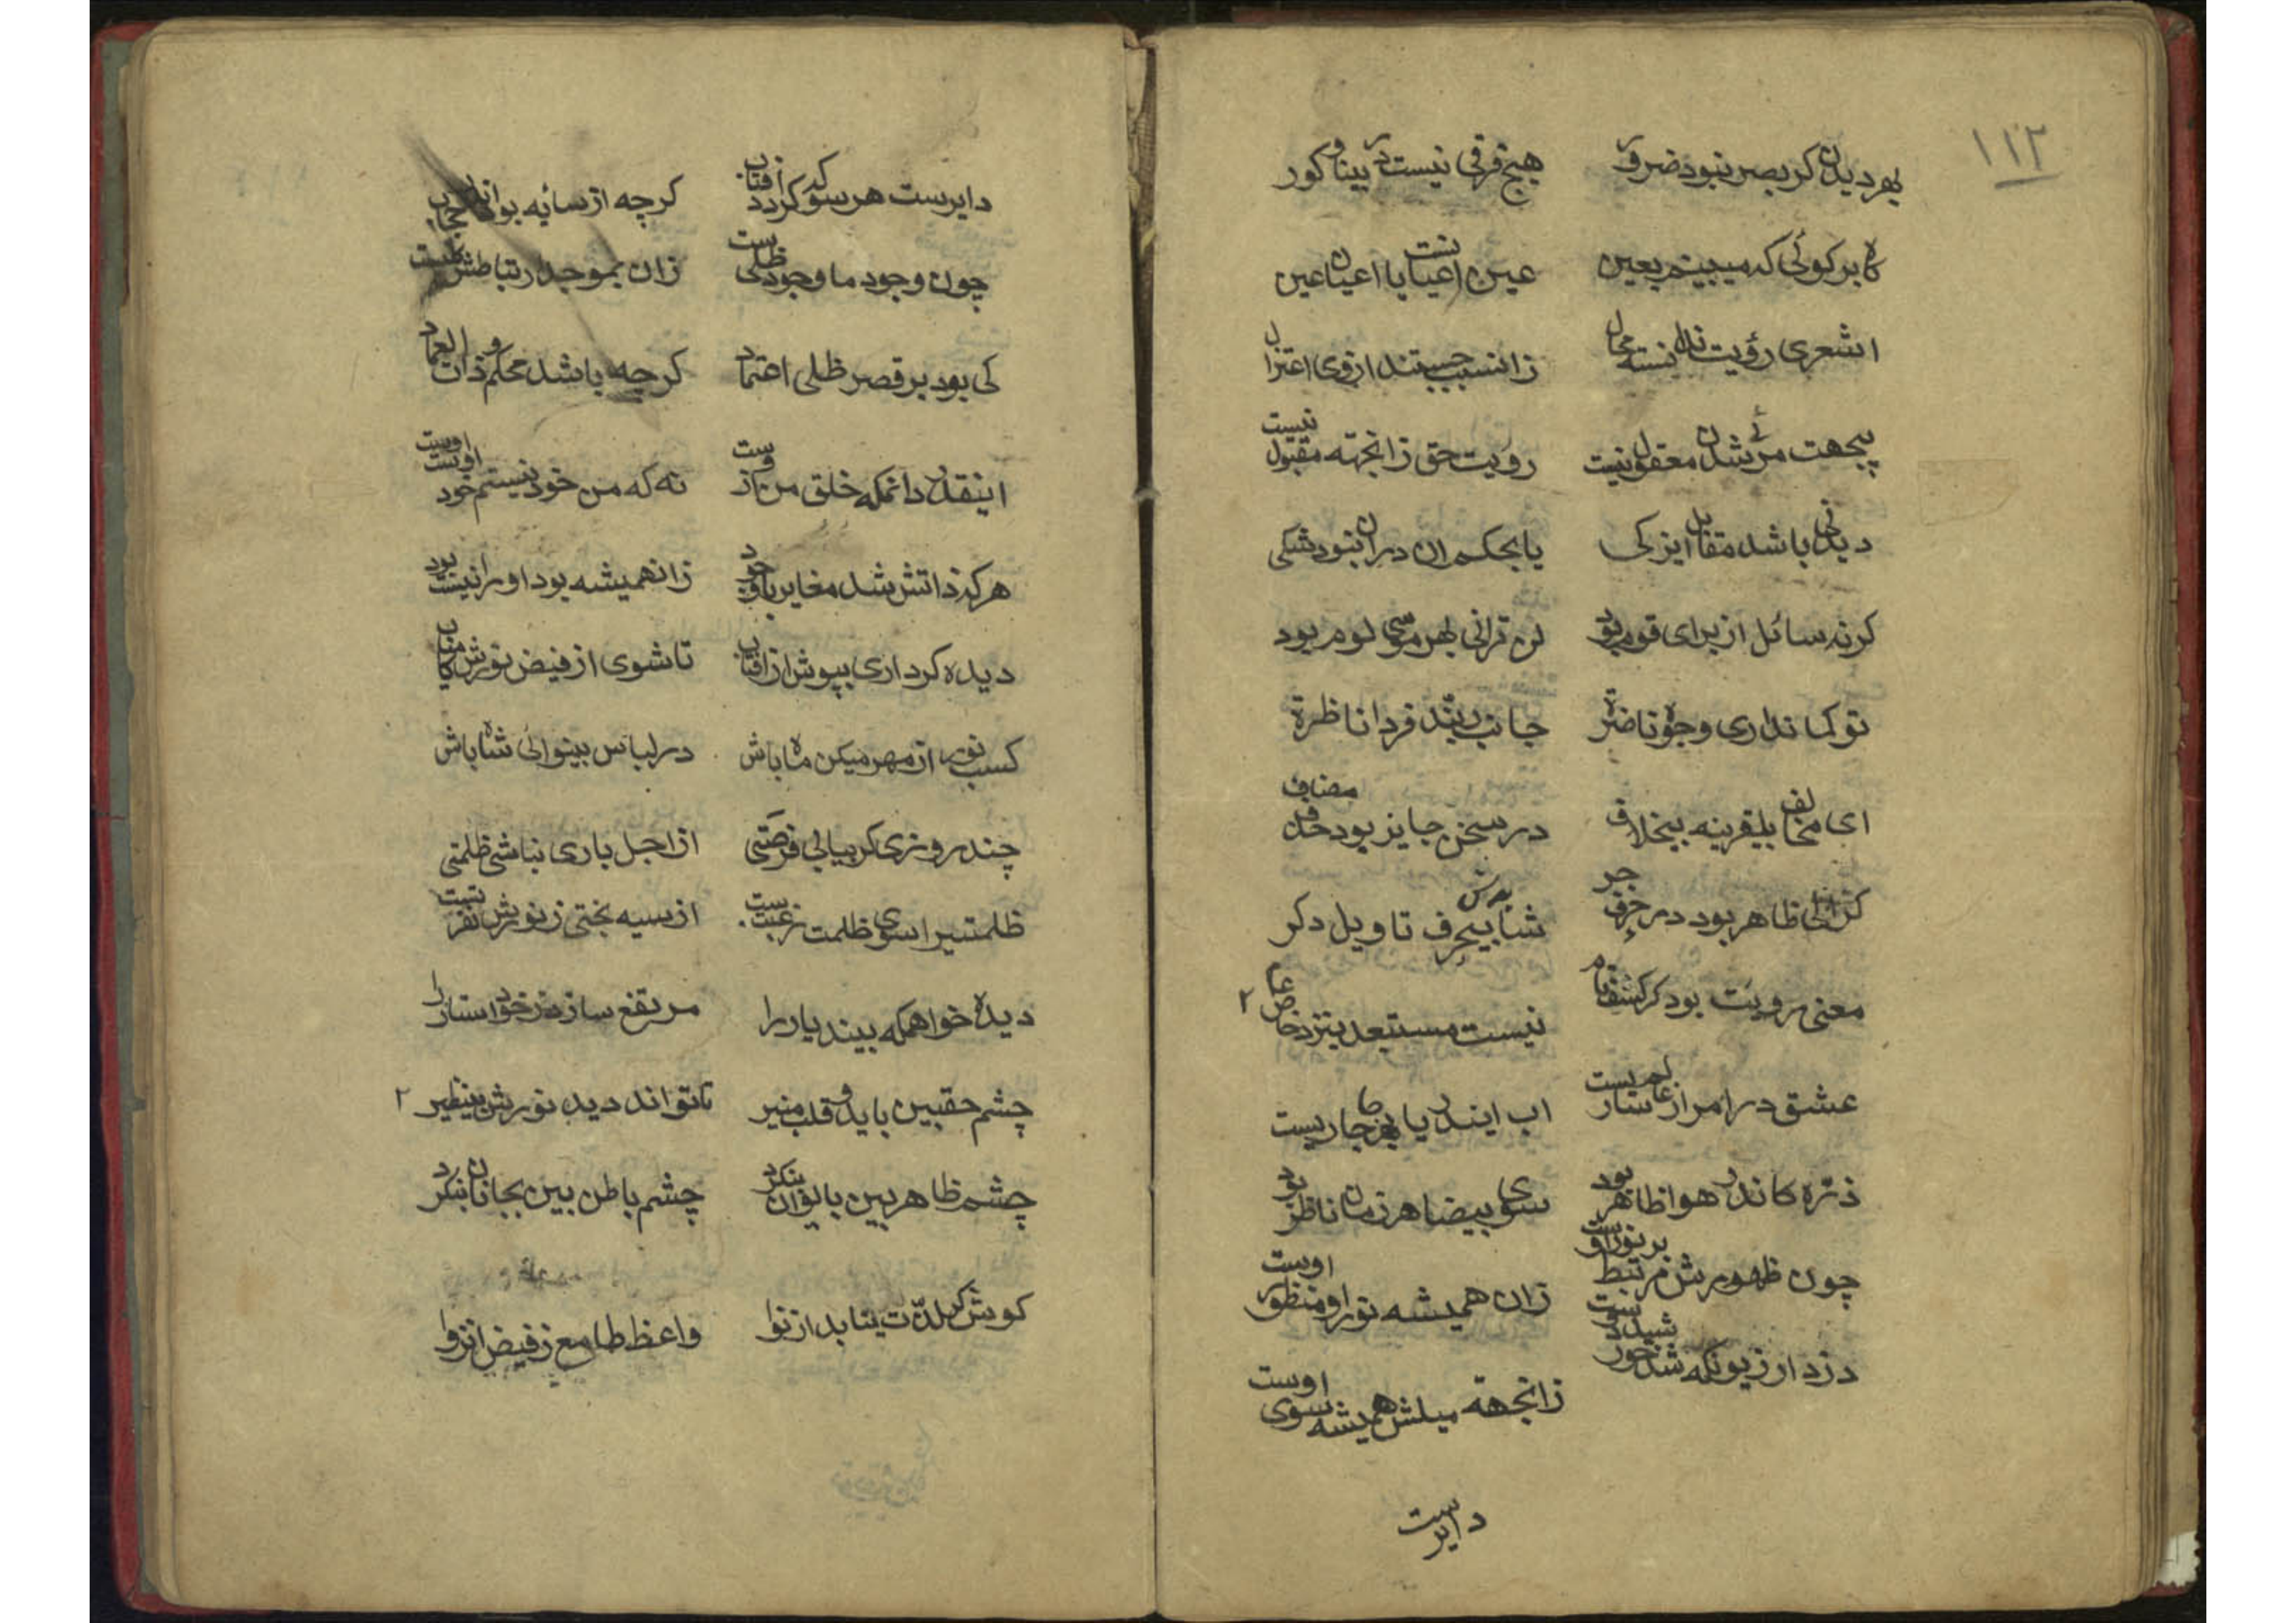 ١١٢
بهر دیدن کر بصر نبود ضرور هیچ فرقی نیست در بینا و کور
کابر کوئی که میبینم بعین عین اعیانست یا اعیان عین
اشعری رؤیت ندانسته محال زانسبب جستند ازوی اعتزال
بیجهت مرئی شدن معقول نیست رویت حق زانجهته مقبول نیست
دیدنی باشد مقابل ایزکی یا بحکم ان دران نبود شکی
کرنه سائل از برای قوم بود لن ترانی بهر موسی لوم بود
توکما نداری وجوه ناضرة جانب ربند فردا ناظرة
ای مخالف بیقرینه بیخلاف در سخن جایز بود حذف مضاف
کزالی ظاهر بود در حرف جر شاید بحرف تاویل دکر
معنی رویت بود کر کشف تام نیست مستبعد بنزد خاص عام ٢
عشق در امرار عالم ساریست اب ایندریا بهر جا جاریست
ذره کاندر هوا ظاهر بود سوی بیضا هر زمان ناظر بود
چون ظهورش مرتبط بر نور اوست زان همیشه نور او منظور اوست
زانجهته میلش همیشه سوی اوست
دایرست
دایرست هر سو که کردد افتاب کرچه از سایه بود اندر حجاب
چون وجود ما وجود ظلیست زان بموجد ارتباطش
کی بود بر قصر ظلی اعتماد کرچه باشد محکم و ذات العماد
اینقدر دانمکه خلق من ازوست نه که من خود نیستم خود اوست اوست
هرکه ذاتش شد مغایر با وجود زانهمیشه بود او را نیست بود
دیده کرداری بپوش از افتاب تا شوی از فیض نورش کامیاب
کسب نور از مهر میکن ماه باش در لباس بینوائی شاه باش
چند روزی کر بیابی فرصتی از اجل باری نباشی ظلمتی
ظلمتیرا سوی ظلمت رغبتست از سیه بختی ز نورش نفرتست
دیده خواهمکه بیند یار را مرتفع سازد ز خود استار را
چشم حقبین باید و قلب منیر تا تواند دید نورش بینظیر ٢
چشم ظاهر بین بالوان بنکرد چشم باطن بین بجانان بنکرد
کوش کر لذت بیابد از نوا واعظ طامع ز فیض انزوا